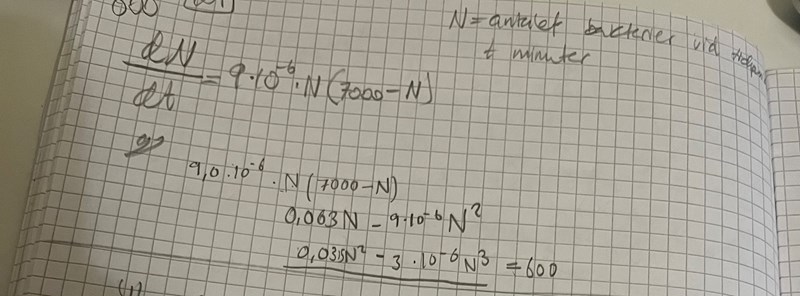 N = antalet bakterier vid tidpun
t minuter
dN/dt = 9·10^-6·N(7000-N)
a)
9,0·10^-6·N(7000-N)
0,063N - 9·10^-6 N^2
0,035N^2 - 3·10^-6 N^3 = 600